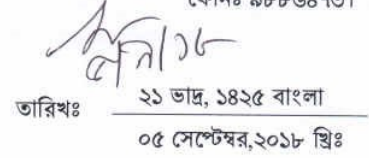 তারিখঃ ২১ ভাদ্র, ১৪২৫ বাংলা
০৫ সেপ্টেম্বর,২০১৮ খ্রিঃ